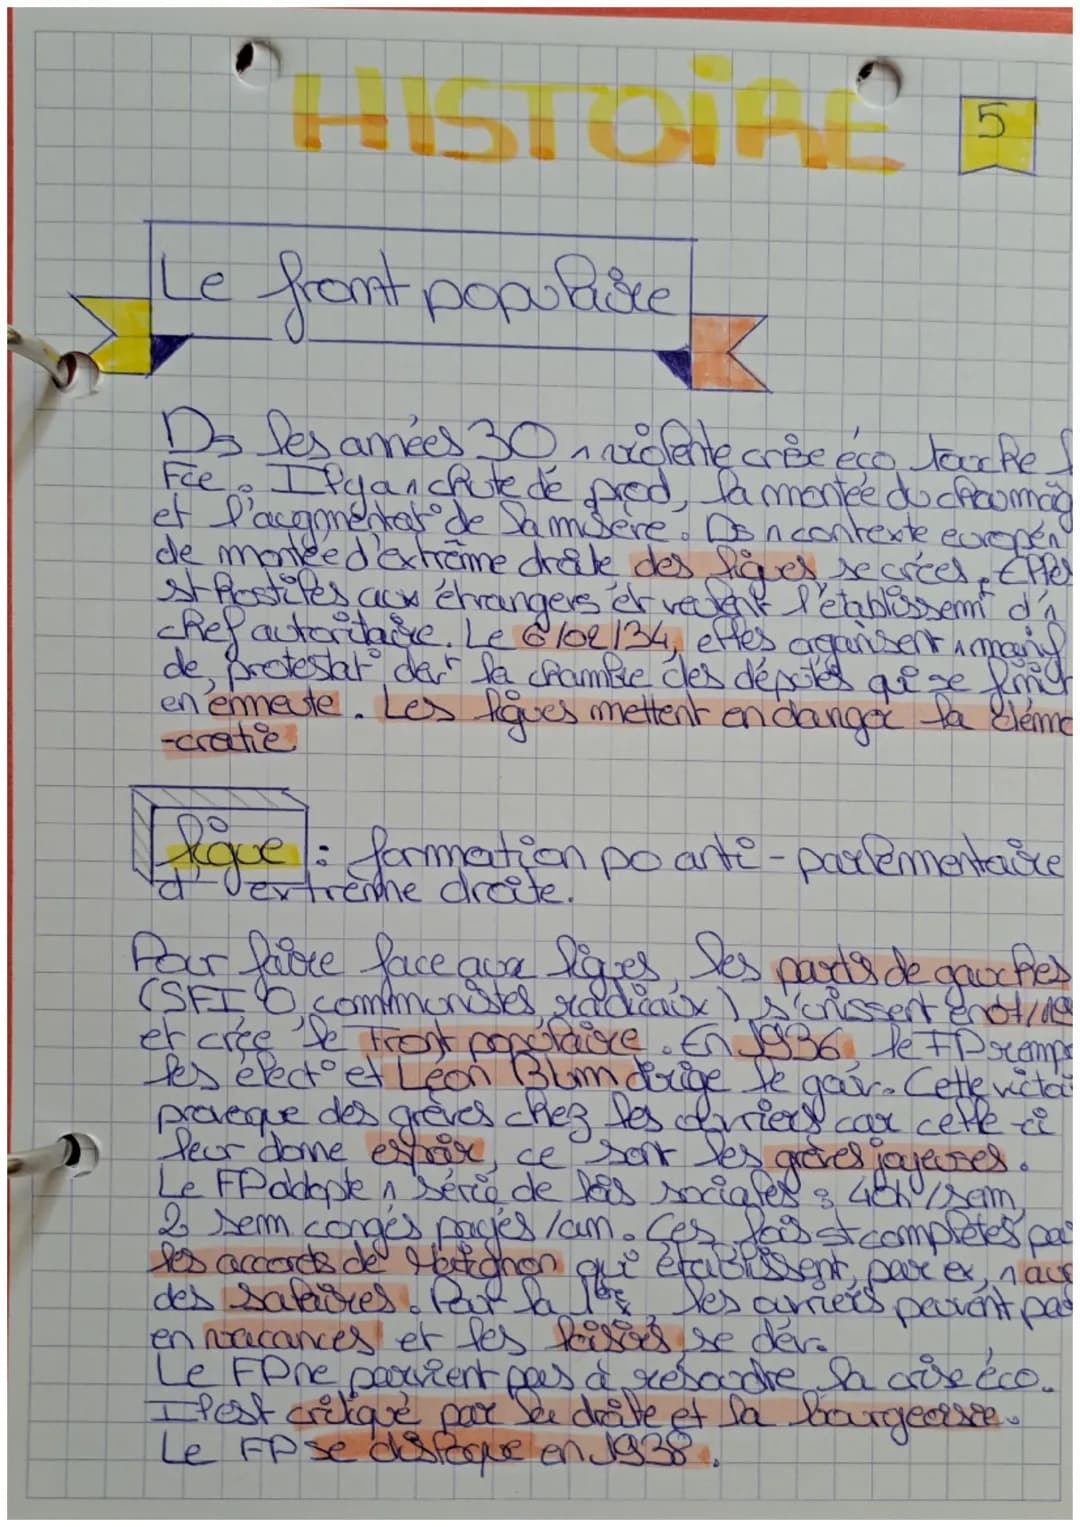 HISTOIRE
5
Le front populaire
Ds les années 30, 1 violente crise éco touche
Fce. Il y a 1 chute de prod, la montée du chômag
et l'augmentat° de la misère. Ds 1 contexte europén
de montée d'extrême droite, des ligues se créés. Elles
st hostiles aux étrangers et veulent l'établissemt d'1
chef autoritaire. Le 6/02/34, elles organisent 1 manif
de protestat° dvt la chambre des députés qui se finit
en émeute. Les ligues mettent en danger la démo
-cratie
ligue : formation po anti-parlementaire
d'extrême droite.
Pour faire face aux ligues, les partis de gauches
(SFIO, communistes, radicaux) s'unissent en
et crée le Front populaire. En 1936, le FP remp
les élect° et Léon Blum dirige le gouv. Cette victoi
provoque des grèves chez les ouvriers car celle-ci
leur donne espoir, ce sont les grèves joyeuses.
Le FP adopte 1 série de lois sociales : 40h/sem,
2 sem congés payés/an. Ces lois st complétés pa
les accords de Matignon qui établissent, par ex, 1 au
des salaires. Pour la 1ère, les ouvriers peuvent pa
en vacances et les loisirs se dév.
Le FP ne parvient pas à résoudre la crise éco.
Il est critiqué par la droite et la bourgeoisie.
Le FP se disloque en 1938.